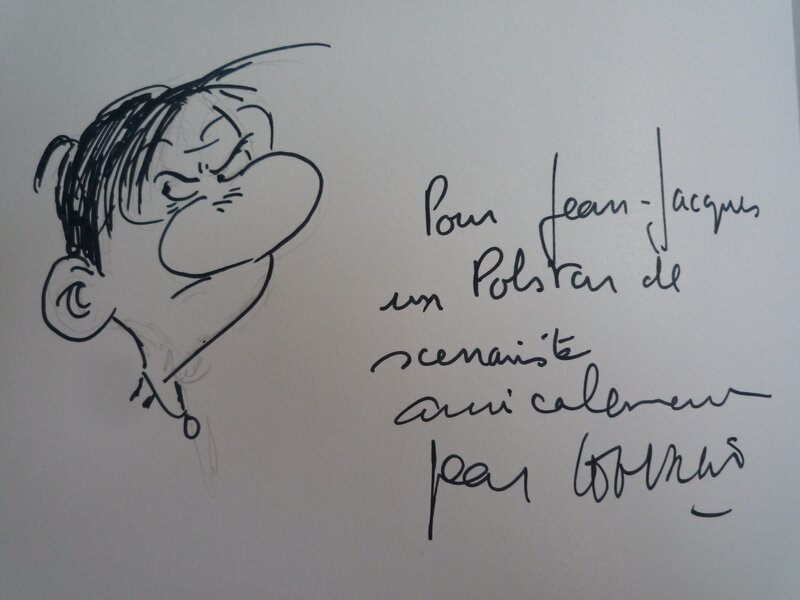 Pour Jean-Jacques
un Polstar de
scenariste
amicalement
jean